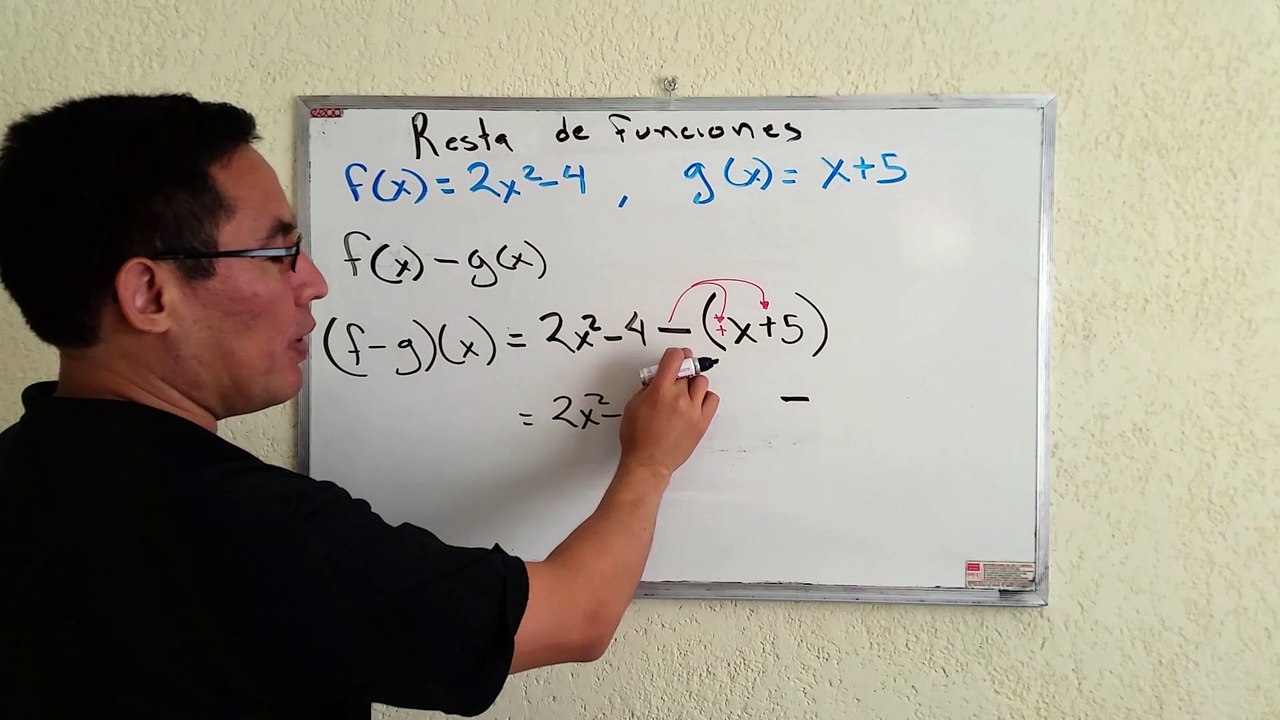 Resta de funciones
f(x) = 2x²-4 , g(x) = x+5
f(x) - g(x)
(f-g)(x) = 2x²-4 - (+x+5)
= 2x²- -